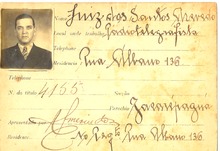 Nome Luiz dos Santos
Local onde trabalha Radiotelegrafista
Telephone
Residencia Rua Albano 136
Telephone
N. do titulo 4155 Secção
Parochia Jacarépagua
Apresentado
Residencia Rua Albano 136